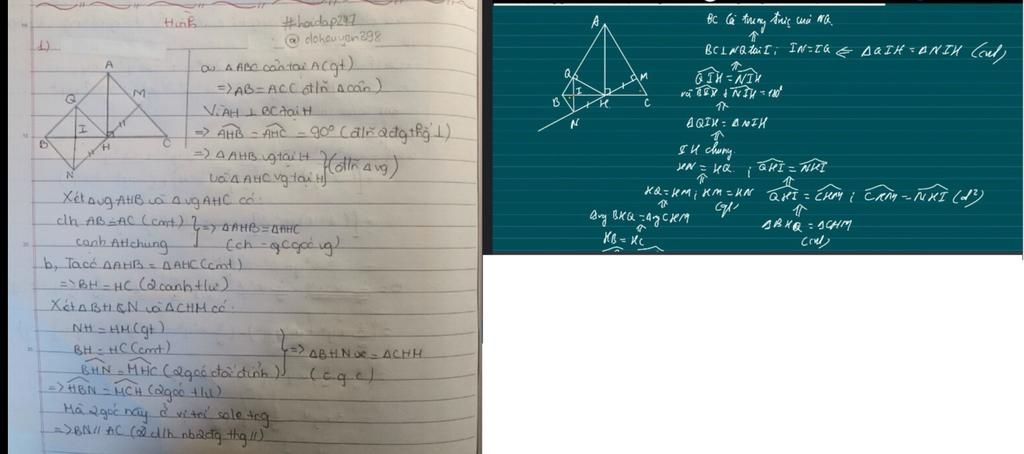 Hình
#hoidap247
@dohauyen398
1)
A
Q
M
B
I
H
C
N
a, ΔABC cân tại A (gt)
=> AB = AC (đ/n Δ cân)
Vì AH ⊥ BC tại H
=> AHB = AHC = 90° (đ/n 2 đg thg ⊥)
=> ΔAHB vg tại H
và ΔAHC vg tại H } (đ/n Δ vg)
Xét Δvg AHB và Δvg AHC có:
c/h AB = AC (cmt)
cạnh AH chung } => ΔAHB = ΔAHC
(ch - góc vg)
b, Ta có ΔAHB = ΔAHC (cmt)
=> BH = HC (2 cạnh t/ư)
Xét ΔBHN và ΔCHM có:
NH = HM (gt)
BH = HC (cmt)
BHN = MHC (2 góc đối đỉnh) } => ΔBHN = ΔCHM
(c.g.c)
=> HBN = MCH (2 góc t/ư)
Mà 2 góc này ở vị trí sole trg
=> BN // AC (2 d/h nb 2 đg thg //)
A
Q
M
B
I
H
C
N
BC là trung trực của NQ
⇑
BC ⊥ NQ tại I ; IN = IQ ⇐ ΔQIH = ΔNIH (cm)
⇑
QIH = NIH
và QIH + NIH = 180°
⇑
ΔQIH = ΔNIH
⇑
IH chung
HN = HQ ; QHI = NHI
⇑ ⇑
HQ = HM ; HM = HN (gt) QHI = CHM ; CHM = NHI (đ²)
⇑ ⇑
Δvg BHQ = Δvg CHM ΔBHQ = ΔCHM
⇑ (cm)
HB = HC